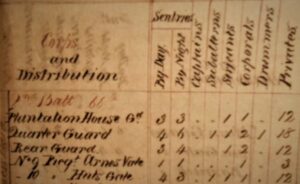 Sentries
Corps
and
Distribution
By Day
By Night
Captains
Subalterns
Serjeants
Corporals
Drummers
Privates
Batt 66
Plantation House Gd 3 3 . . 1 1 . 12
Quarter Guard 4 1 1 2 1 18
Rear Guard 3 4 . . 1 2 . 12
No 9 Gate 1 1 . . . 1 . 3
10 Huts Gate 4 3 . . 1 1 . 12